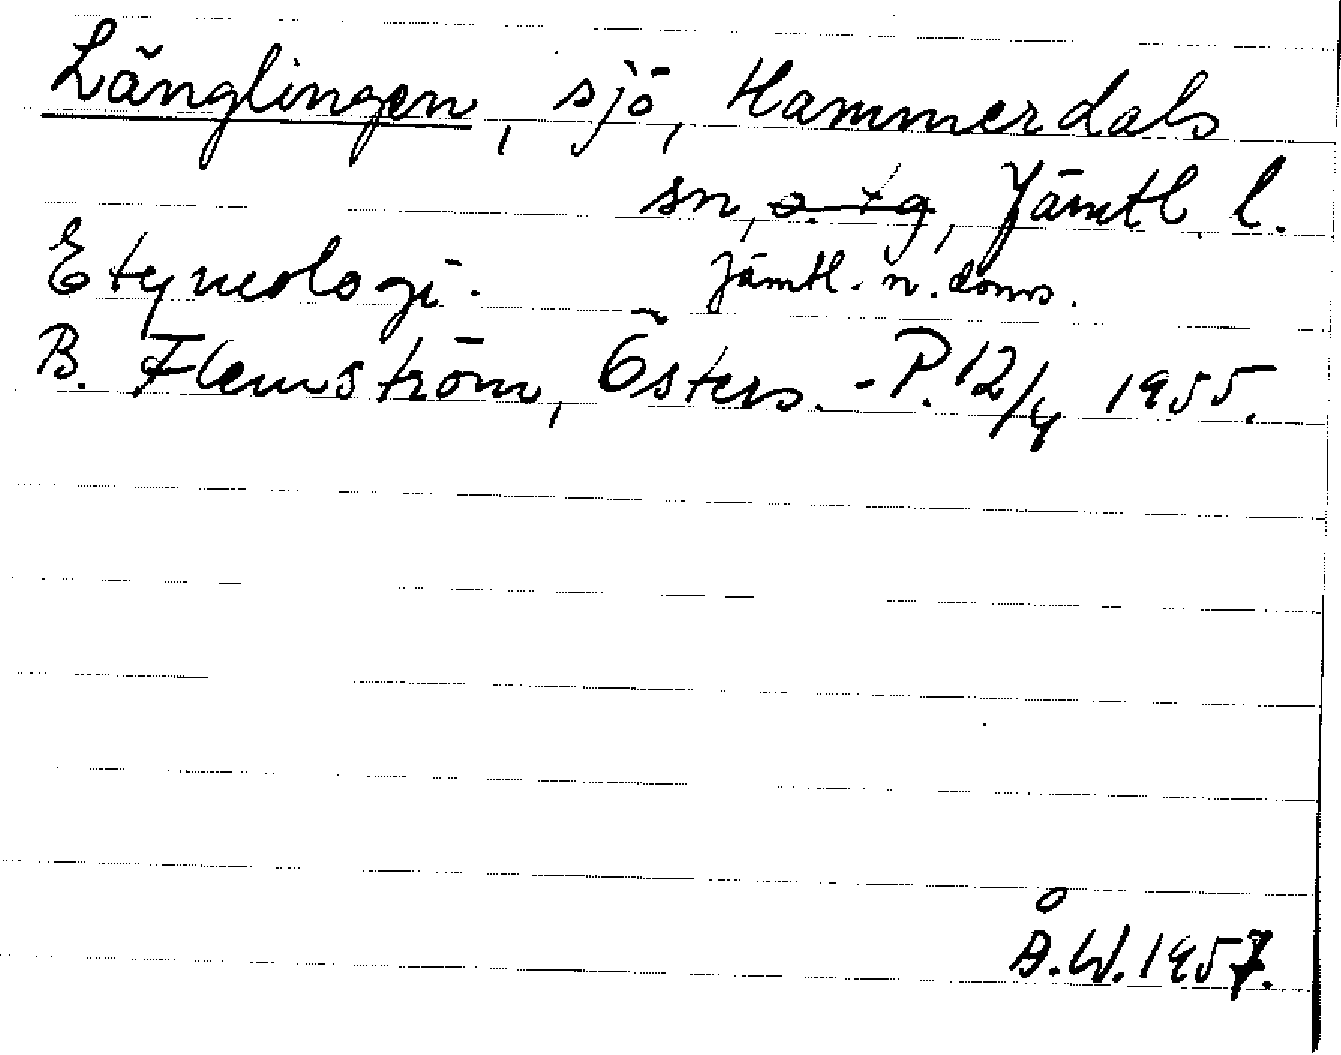 Länglingen, sjö, Hammerdals
sn, s. tg, Jämtl. l.
Etymologi. Jämtl. n. doms.
B. Flemström, Österss. - P. 12/4 1955.
Å.W. 1957.